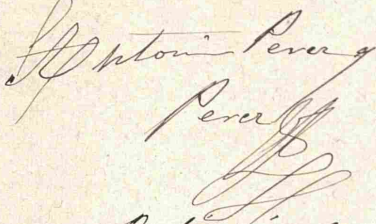 Antonio Perez y
Perez